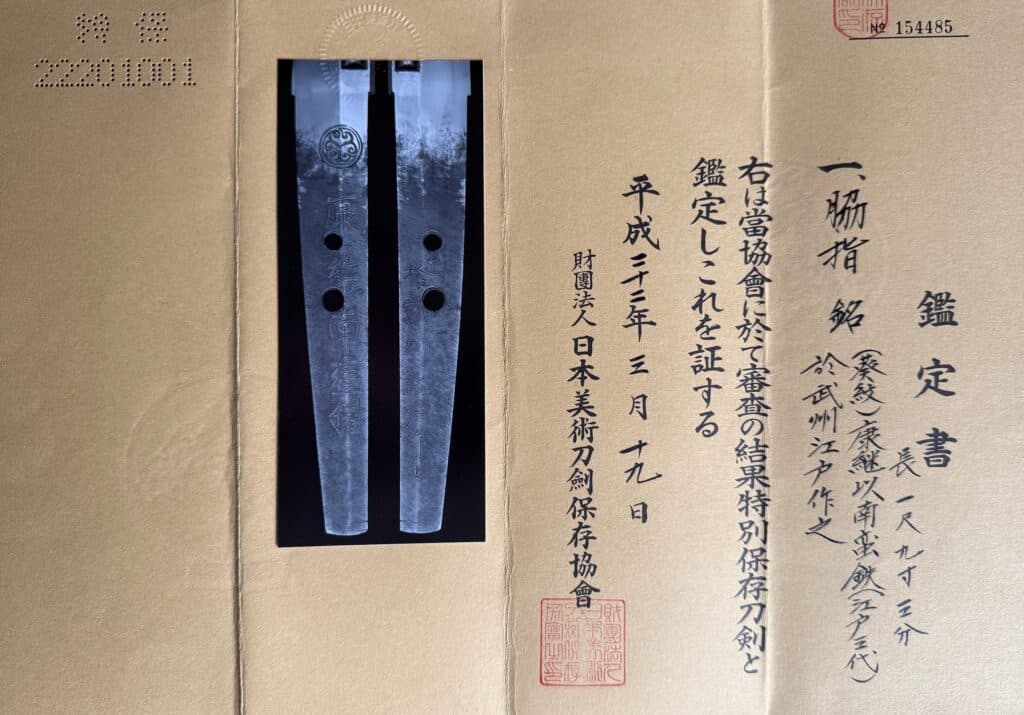 № 154485
鑑定書
一、脇指 銘 (葵紋)康継以南蛮鉄(江戸三代)
於武州江戸作之
長一尺九寸三分
右は當協會に於て審査の結果特別保存刀剣と
鑑定しこれを証する
平成二十二年三月十九日
財團法人日本美術刀劍保存協會
特保
22201001